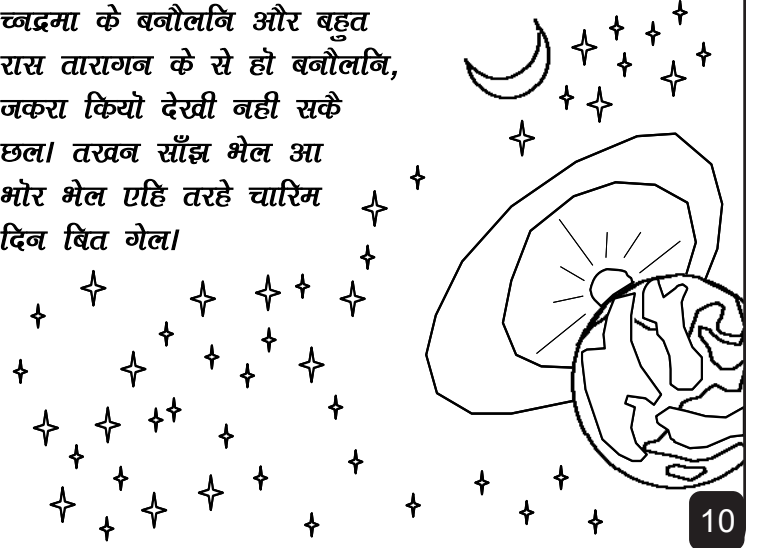 च्नद्रमा के बनौलनि और बहुत
रास तारागन के से हॊ बनौलनि,
जकरा कियॊ देखी नही सकै
छल। तखन साँझ भेल आ
भॊर भेल एहि तरहे चारिम
दिन बित गेल।
10